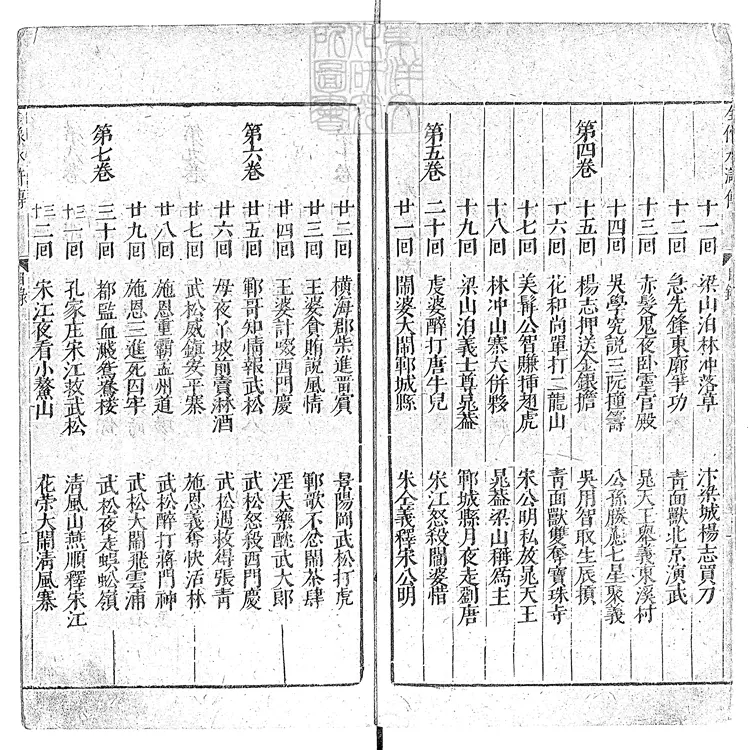 十一回 梁山泊林冲落草 汴梁城楊志買刀
十二回 急先鋒東廓爭功 靑面獸北京演武
十三回 赤髮鬼夜卧靈官殿 晁天王舉義東溪村
第四卷
十四回 吳學究説三阮撞籌 公孫勝應七星聚義
十五回 楊志押送金銀擔 吳用智取生辰損
十六回 花和尚單打二龍山 靑面獸雙奪寶珠寺
十七回 美髯公智賺揷翅虎 宋公明私放晁天王
十八回 林冲山寨大併夥 晁葢梁山稱爲主
十九回 梁山泊義士尊晁葢 鄆城縣月夜走劉唐
第五卷
二十回 虔婆醉打唐牛兒 宋江怒殺閻婆惜
廿一回 閻婆大鬧鄆城縣 朱仝義釋宋公明
廿二回 橫海郡柴進畱賓 景陽岡武松打虎
廿三回 王婆貪賄說風情 鄆歌不忿鬧茶肆
廿四回 王婆計啜西門慶 淫夫藥酖武大郎
第六卷
廿五回 鄆哥知情報武松 武松怒殺西門慶
廿六回 母夜叉坡前賣淋酒 武松遇救得張靑
廿七回 武松威鎮安平寨 施恩義奪快活林
廿八回 施恩重霸孟州道 武松醉打蔣門神
廿九回 施恩三進死囚牢 武松大鬧飛雲浦
第七卷
三十回 都監血濺鴛鴦樓 武松夜走蜈蚣嶺
三十一回 孔家庄宋江救武松 淸風山燕順釋宋江
三十二回 宋江夜看小鰲山 花榮大鬧淸風寨